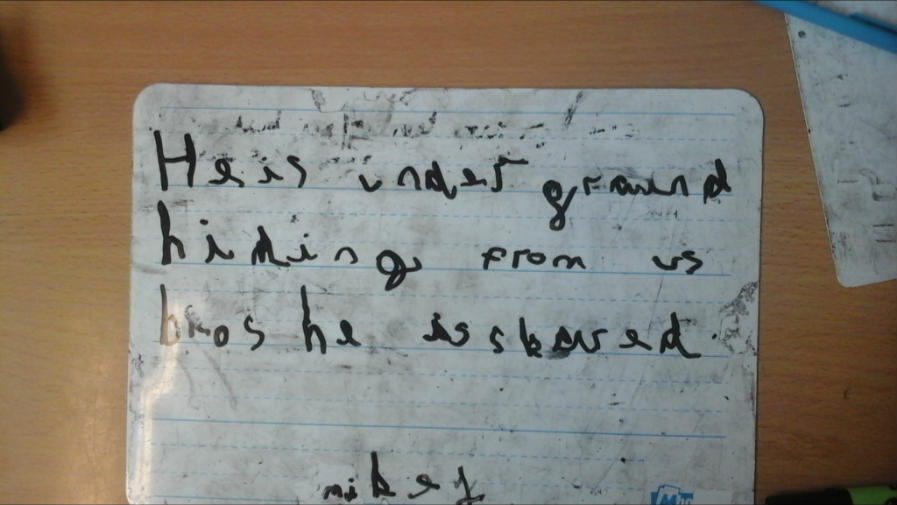 He is under ground
hiding from us
bkos he is skared.
mikey